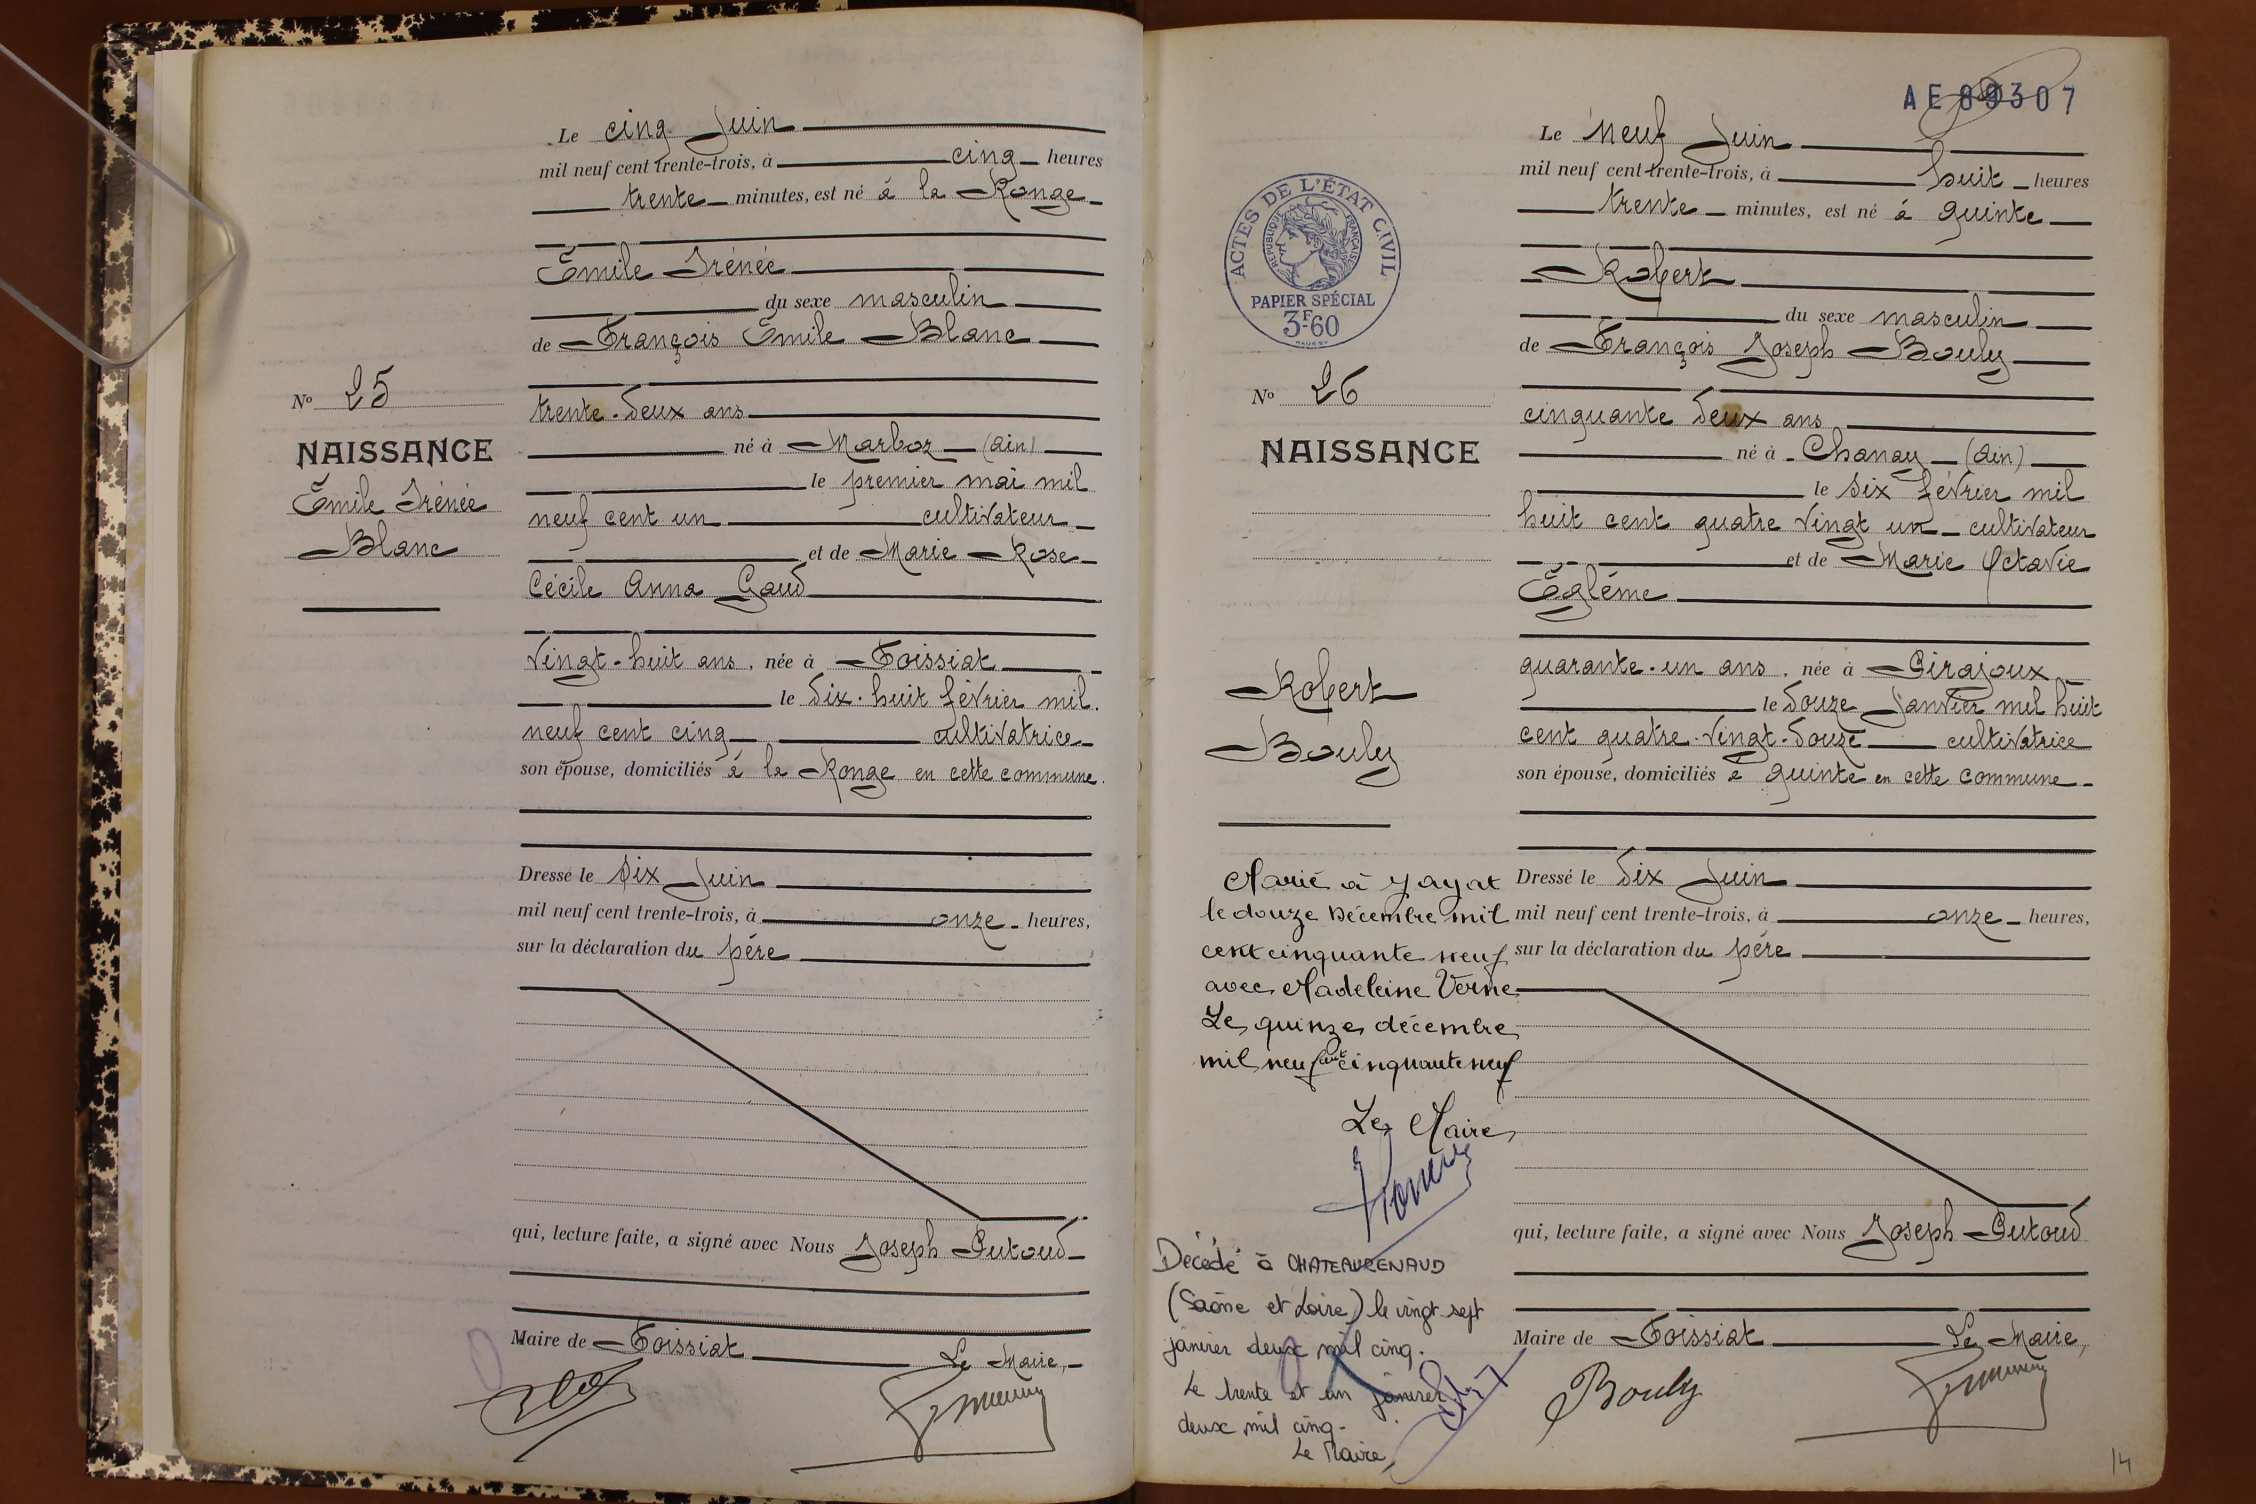 Le cinq Juin
mil neuf cent trente-trois, à cinq heures
trente minutes, est né à la Ronge
Emile Irénée
du sexe masculin
de François Emile Blanc
Nº 25
trente-deux ans
NAISSANCE
né à Marboz (Ain)
Emile Irénée
le premier mai mil
neuf cent un cultivateur
Blanc
et de Marie Rose
Cécile Anna Gaud
vingt-huit ans, née à Foissiat
le dix-huit février mil
neuf cent cinq cultivatrice
son épouse, domiciliés à la Ronge en cette commune.
Dressé le six Juin
mil neuf cent trente-trois, à onze heures,
sur la déclaration du père
qui, lecture faite, a signé avec Nous Joseph Putoud
Maire de Foissiat Le Maire,
AE 89307
Le neuf Juin
mil neuf cent trente-trois, à huit heures
trente minutes, est né à Quinte
ACTES DE L'ÉTAT CIVIL
RÉPUBLIQUE FRANÇAISE
PAPIER SPÉCIAL
3F60
Robert
du sexe masculin
de François Joseph Bouly
Nº 26
cinquante deux ans
NAISSANCE
né à Chanay (Ain)
le six février mil
huit cent quatre vingt un cultivateur
et de Marie Octavie
Eglème
Robert
Bouly
quarante-un ans, née à Pirajoux
le douze Janvier mil huit
cent quatre-vingt-douze cultivatrice
son épouse, domiciliés à Quinte en cette commune
Dressé le dix Juin
mil neuf cent trente-trois, à onze heures,
sur la déclaration du père
Marié à Jayat
le douze Décembre mil
cent cinquante neuf
avec Madeleine Verne
Le quinze décembre
mil neuf cent cinquante neuf
Le Maire
Décédé à CHATEAURENAUD
(Saône et Loire) le vingt sept
janvier deux mil cinq.
Le trente et un janvier
deux mil cinq.
Le Maire,
qui, lecture faite, a signé avec Nous Joseph Putoud
Maire de Foissiat Le Maire,
Bouly
14